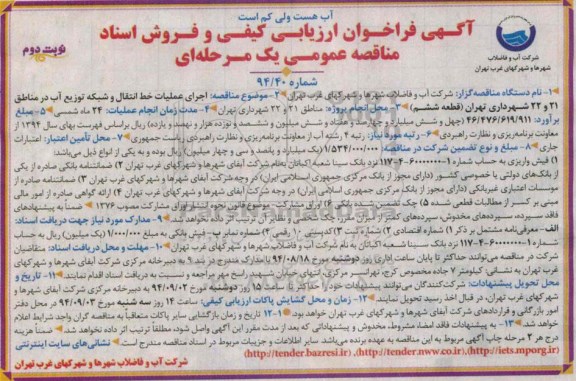 آب هست ولی کم است
آگهی فراخوان ارزیابی کیفی و فروش اسناد
مناقصه عمومی یک مرحله‌ای
نوبت دوم
شماره ۹۴/۴۰
شرکت آب و فاضلاب
شهرها و شهرکهای غرب تهران
۱- نام دستگاه مناقصه‌گزار: شرکت آب و فاضلاب شهرها و شهرکهای غرب تهران ۲- موضوع مناقصه: اجرای عملیات خط انتقال و شبکه توزیع آب در مناطق
۲۱ و ۲۲ شهرداری تهران (قطعه ششم) ۳- محل انجام پروژه: مناطق ۲۱ و ۲۲ شهرداری تهران ۴- مدت زمان انجام عملیات: ۲۴ ماه شمسی ۵- مبلغ
برآورد: ۴۶/۴۷۶/۶۱۹/۹۱۱ (چهل و شش میلیارد و چهارصد و هفتاد و شش میلیون و ششصد و نوزده هزار و نهصد و یازده) ریال براساس فهرست بهای سال ۱۳۹۴ از
معاونت برنامه‌ریزی و نظارت راهبردی ۶- رتبه مورد نیاز: رتبه ۴ رشته آب از معاونت برنامه‌ریزی و نظارت راهبردی ۷- محل تأمین اعتبار: اعتبارات
جاری ۸- مبلغ و نوع تضمین شرکت در مناقصه: ۱/۵۳۴/۰۰۰/۰۰۰ (یک میلیارد و پانصد و سی و چهار میلیون) ریال بوده و به یکی از انواع ذیل می‌باشد
۱) فیش واریزی به حساب شماره ۱-۶۰۰۰۰۰۰-۴-۱۱۷ نزد بانک سینا شعبه اکباتان به‌نام شرکت آبفای شهرها و شهرکهای غرب تهران ۲) ضمانتنامه بانکی صادره از یکی
از بانک‌های دولتی یا خصوصی کشور (دارای مجوز از بانک مرکزی جمهوری اسلامی ایران) در وجه شرکت آبفای شهرها و شهرکهای غرب تهران ۳) ضمانتنامه صادره از
موسسات اعتباری غیربانکی (دارای مجوز از بانک مرکزی جمهوری اسلامی ایران) در وجه شرکت آبفای شهرها و شهرکهای غرب تهران ۴) ارائه گواهی صادره از امور مالی
مبنی بر کسر از مطالبات قطعی شده ۵) چک تضمین شده بانکی ۶) اوراق مشارکت موضوع قانون نحوه انتشار اوراق مشارکت مصوب ۱۳۷۶ ضمناً به پیشنهادهای
فاقد سپرده، سپرده‌های مخدوش، سپرده‌های کمتر از میزان مقرر، چک شخصی و نظایر آن ترتیب اثر داده نخواهد شد. ۹- مدارک مورد نیاز جهت دریافت اسناد:
الف- معرفی‌نامه مشتمل بر ذکر ۱) شماره اقتصادی ۲) شماره ثبت ۳) کدپستی ۱۰ رقمی ۴) شماره نمابر ب- فیش بانکی به مبلغ ۱/۰۰۰/۰۰۰ (یک میلیون) ریال به حساب
شماره ۱-۶۰۰۰۰۰۰-۴-۱۱۷ نزد بانک سینا شعبه اکباتان به نام شرکت آب و فاضلاب شهرها و شهرکهای غرب تهران ۱۰- مهلت و محل دریافت اسناد: متقاضیان
شرکت در مناقصه می‌توانند حداکثر تا پایان ساعت اداری روز دوشنبه مورخ ۹۴/۰۸/۱۸ با مدارک مندرج در بند ۹ به دبیرخانه مرکزی شرکت آبفای شهرها و شهرکهای
غرب تهران به نشانی: کیلومتر ۷ جاده مخصوص کرج، تهرانسر مرکزی، انتهای خیابان شهید راسخ مهر مراجعه و نسبت به دریافت اسناد اقدام نمایند. ۱۱- تاریخ و
محل تحویل پیشنهادات: شرکت‌کنندگان می‌توانند پیشنهادات خود را حداکثر تا ساعت ۱۵ روز دوشنبه مورخ ۹۴/۰۹/۰۲ به دبیرخانه مرکزی شرکت آبفای شهرها و
شهرکهای غرب تهران، در قبال اخذ رسید تحویل نمایند. ۱۲- زمان و محل گشایش پاکات ارزیابی کیفی: ساعت ۱۴ روز سه شنبه مورخ ۹۴/۰۹/۰۳ در محل دفتر
امور بازرگانی و قراردادهای شرکت آبفای شهرها و شهرکهای غرب تهران خواهد بود. ۱-۱۲ تاریخ و زمان بازگشایی سایر پاکات متعاقباً به مناقصه گران واجد شرایط اعلام
خواهد شد ۱۳- به پیشنهادات فاقد امضا، مشروط، مخدوش و پیشنهاداتی که بعد از مدت مقرر این آگهی واصل شود، مطلقاً ترتیب اثر داده نخواهد شد. ضمناً هزینه
درج هر ۲ مرحله چاپ آگهی مربوط به این مناقصه به عهده برنده می‌باشد سایر اطلاعات و جزئیات مربوط در اسناد مناقصه مندرج است نشانی‌های سایت اینترنتی
(http://tender.bazresi.ir) ,(http://tender.nww.co.ir),(http://iets.mporg.ir)
شرکت آب و فاضلاب شهرها و شهرکهای غرب تهران